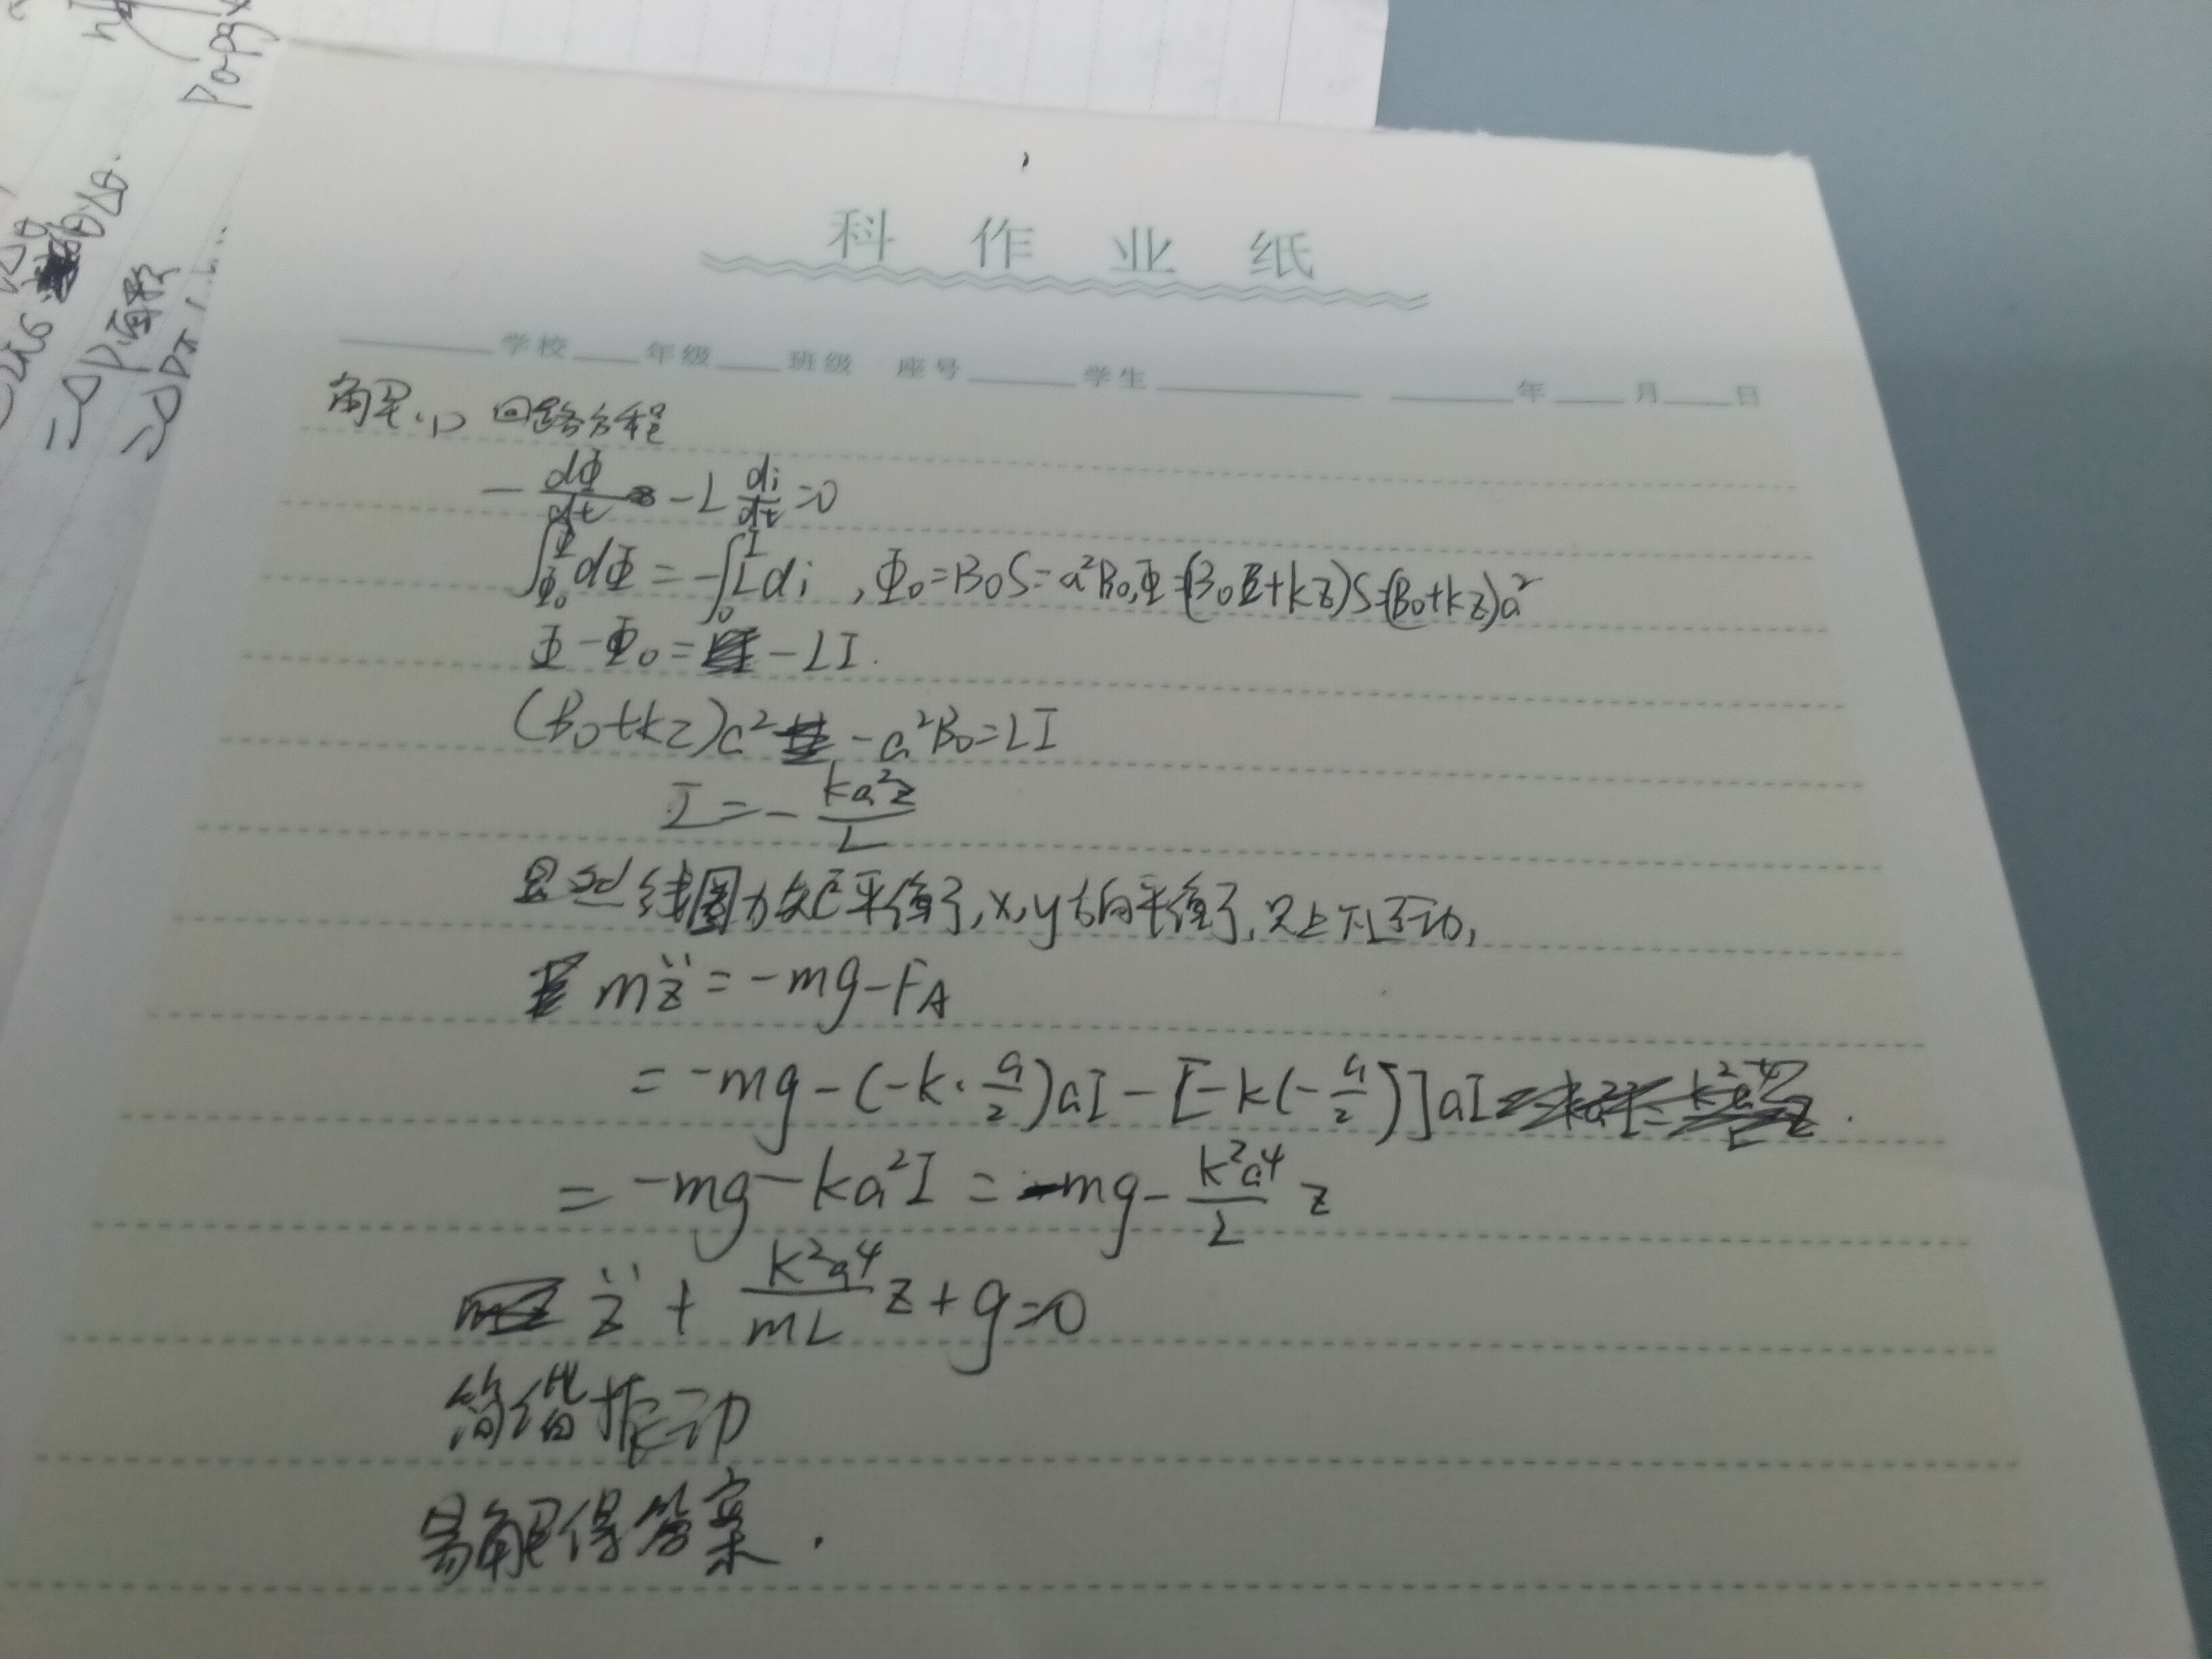 Po-pgx
科作业纸
学校 年级 班级 座号 学生 年 月 日
解:(1) 回路方程
-dΦ/dt -L di/dt =0
∫_{Φ0}^{Φ} dΦ = -∫_0^I L di , Φ0=B0S=a²B0, Φ=(B0+kz)S=(B0+kz)a²
Φ-Φ0= -LI.
(B0+kz)a² -a²B0=LI
I=-ka²z/L
显然线圈力矩平衡了,x,y方向平衡了,只上下运动,
mz̈=-mg-FA
=-mg-(-k·a/2)aI-[-k(-a/2)]aI
=-mg-ka²I=-mg-k²a⁴/L z
z̈+k²a⁴/mL z+g=0
简谐振动
易解得答案.